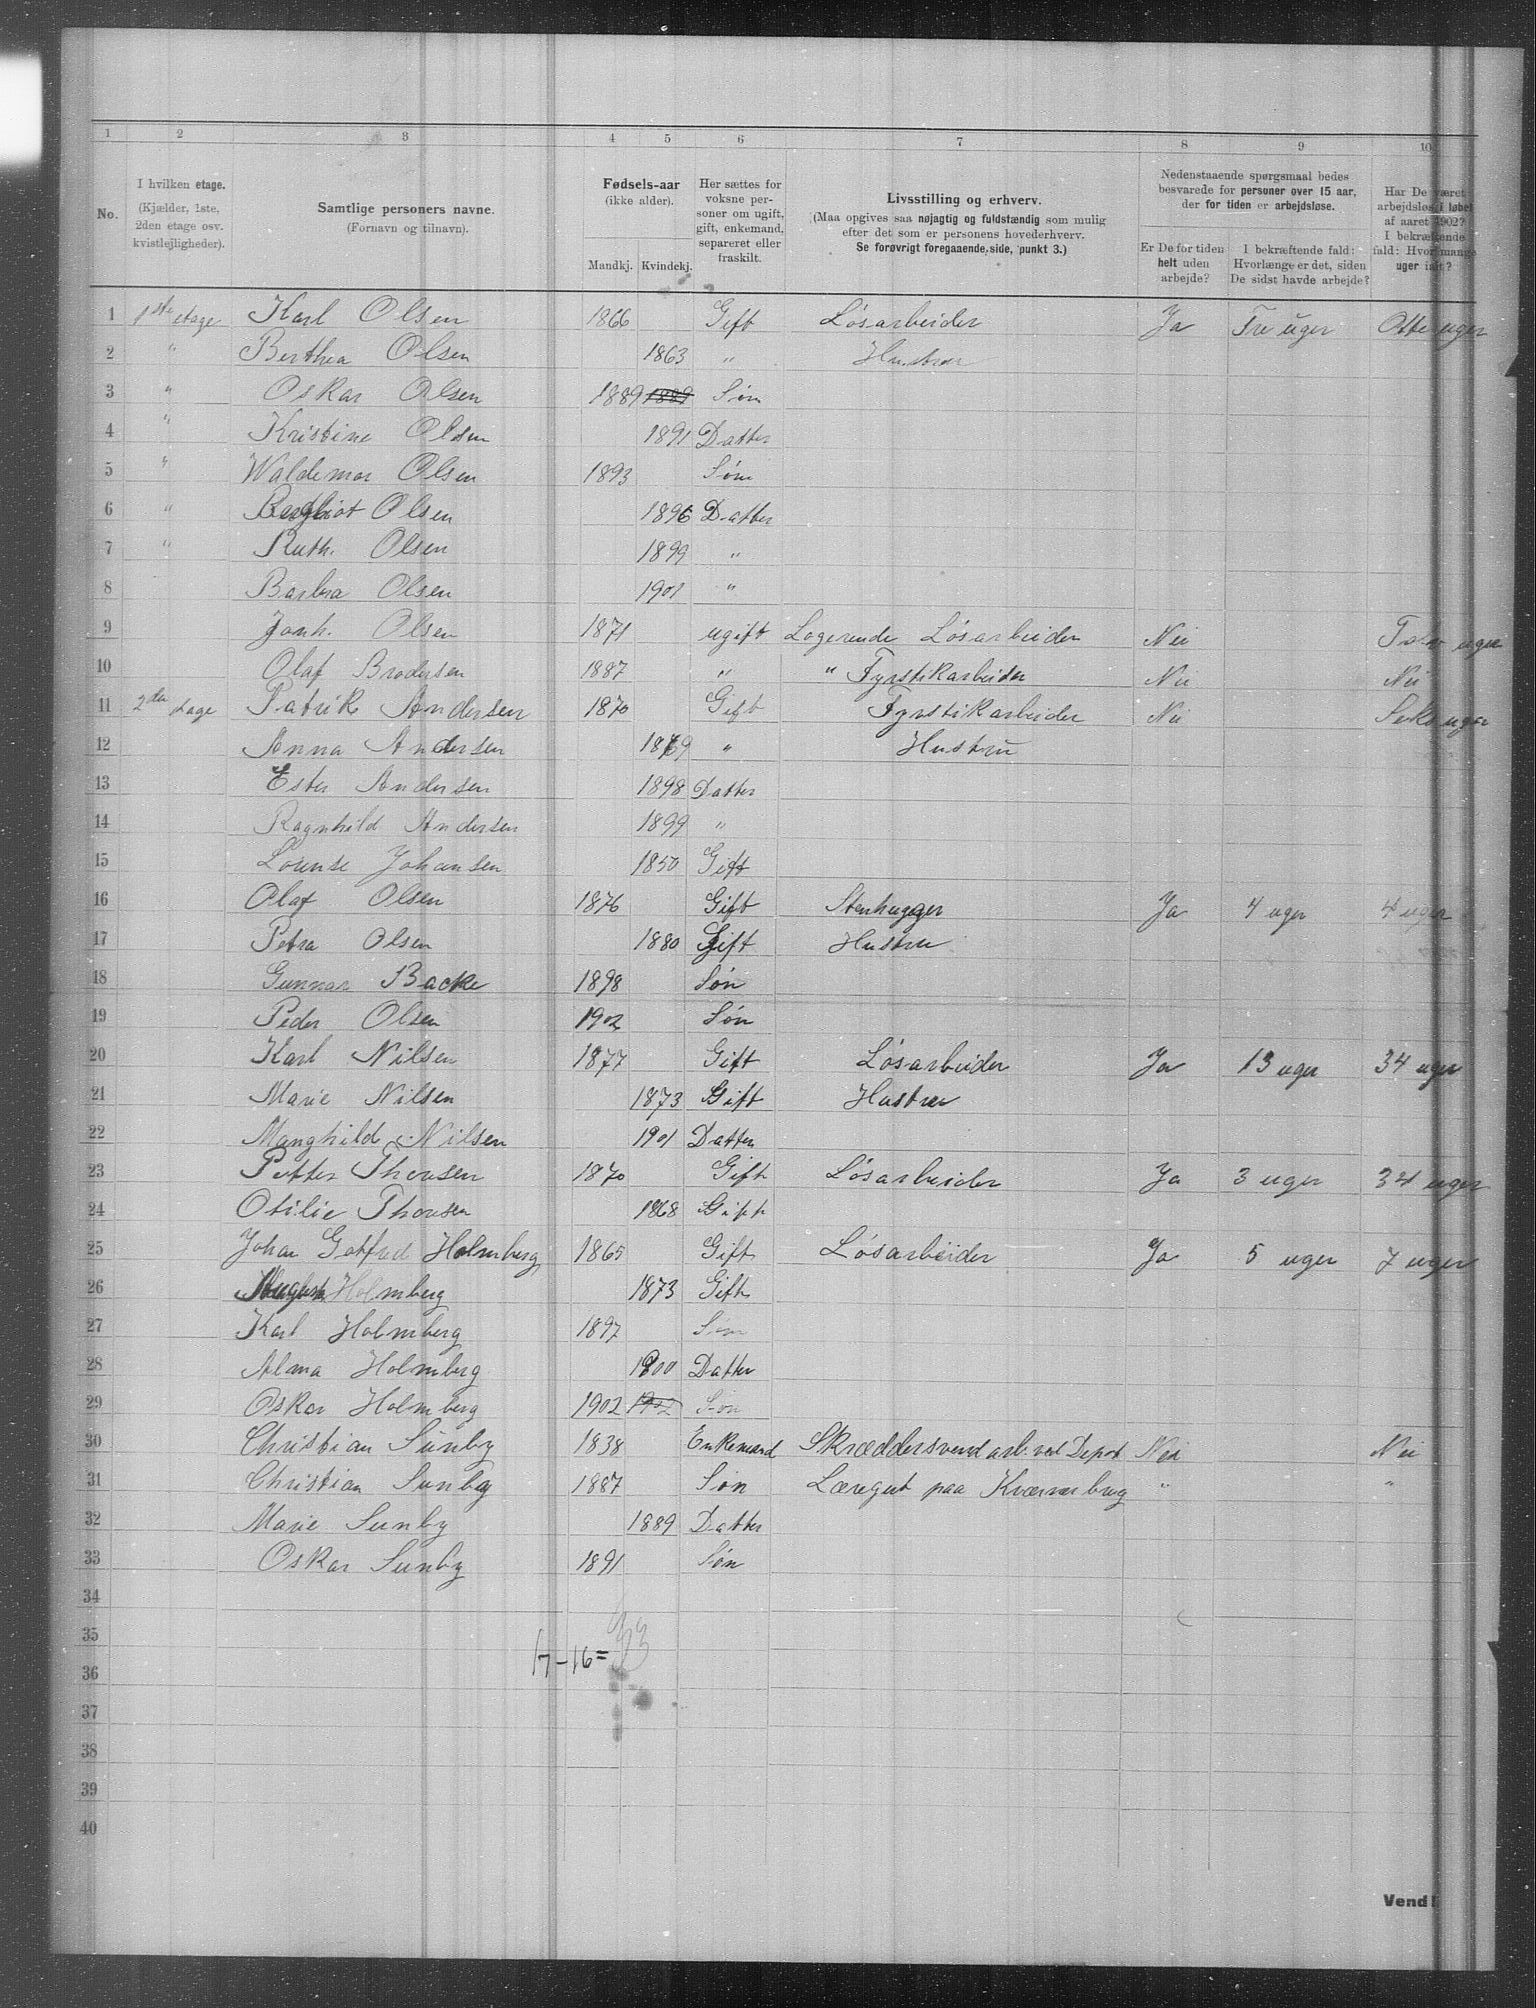 1 2 3 4 5 6 7 8 9 10
No.
I hvilken etage.
(Kjælder, 1ste,
2den etage osv.
kvistlejligheder).
Samtlige personers navne.
(Fornavn og tilnavn).
Fødsels-aar
(ikke alder).
Mandkj. Kvindekj.
Her sættes for
voksne per-
soner om ugift,
gift, enkemand,
separeret eller
fraskilt.
Livsstilling og erhverv.
(Maa opgives saa nøjagtig og fuldstændig som mulig
efter det som er personens hovederhverv.
Se forøvrigt foregaaende side, punkt 3.)
Nedenstaaende spørgsmaal bedes
besvarede for personer over 15 aar,
der for tiden er arbejdsløse.
Er De for tiden
helt uden
arbejde?
I bekræftende fald:
Hvorlænge er det, siden
De sidst havde arbejde?
Har De været
arbejdsløs i løbet
af aaret 1902?
I bekræftende
fald: Hvor mange
uger ialt?
1 1ste etage Karl Olsen 1866 Gift Løsarbeider Ja Tre uger Otte uger
2 " Berthea Olsen 1863 " Hustru
3 " Oskar Olsen 1889 1889 Søn
4 " Kristine Olsen 1891 Datter
5 " Waldemar Olsen 1893 Søn
6 " Bergliot Olsen 1896 Datter
7 " Ruth. Olsen 1899 "
8 Barbra Olsen 1901 "
9 Jonh. Olsen 1871 ugift Logerende Løsarbeider Nei uger
10 Olaf Brodersen 1887 " " Fyrstikarbeider Nei Nei
11 2den Etage Patrik Andersen 1870 Gift Fyrstikarbeider Nei Seks uger
12 Anna Andersen 1869 " Hustru
13 Ester Andersen 1898 Datter
14 Ragnhild Andersen 1899 "
15 Lovense Johansen 1850 Gift
16 Olaf Olsen 1876 Gift Stenhugger Ja 4 uger 4 uger
17 Petra Olsen 1880 Gift Hustru
18 Gunnar Backe 1898 Søn
19 Peder Olsen 1902 Søn
20 Karl Nilsen 1877 Gift Løsarbeider Ja 13 uger 34 uger
21 Marie Nilsen 1873 Gift Hustru
22 Manghild Nilsen 1901 Datter
23 Petter Thorsen 1870 Gift Løsarbeider Ja 3 uger 34 uger
24 Otilie Thorsen 1868 Gift
25 Johan Gotfred Holmberg 1865 Gift Løsarbeider Ja 5 uger 7 uger
26 Holmberg 1873 Gift
27 Karl Holmberg 1897 Søn
28 Alma Holmberg 1900 Datter
29 Oskar Holmberg 1902 1902 Søn
30 Christian Sunby 1838 Enkemand Skræddersvend arb. ved Depot Nei Nei
31 Christian Sunby 1887 Søn Læregut paa Kværnerbrug " "
32 Marie Sunby 1889 Datter
33 Oskar Sunby 1891 Søn
34
35
36
37
38
39
40
17-16=33
Vend!